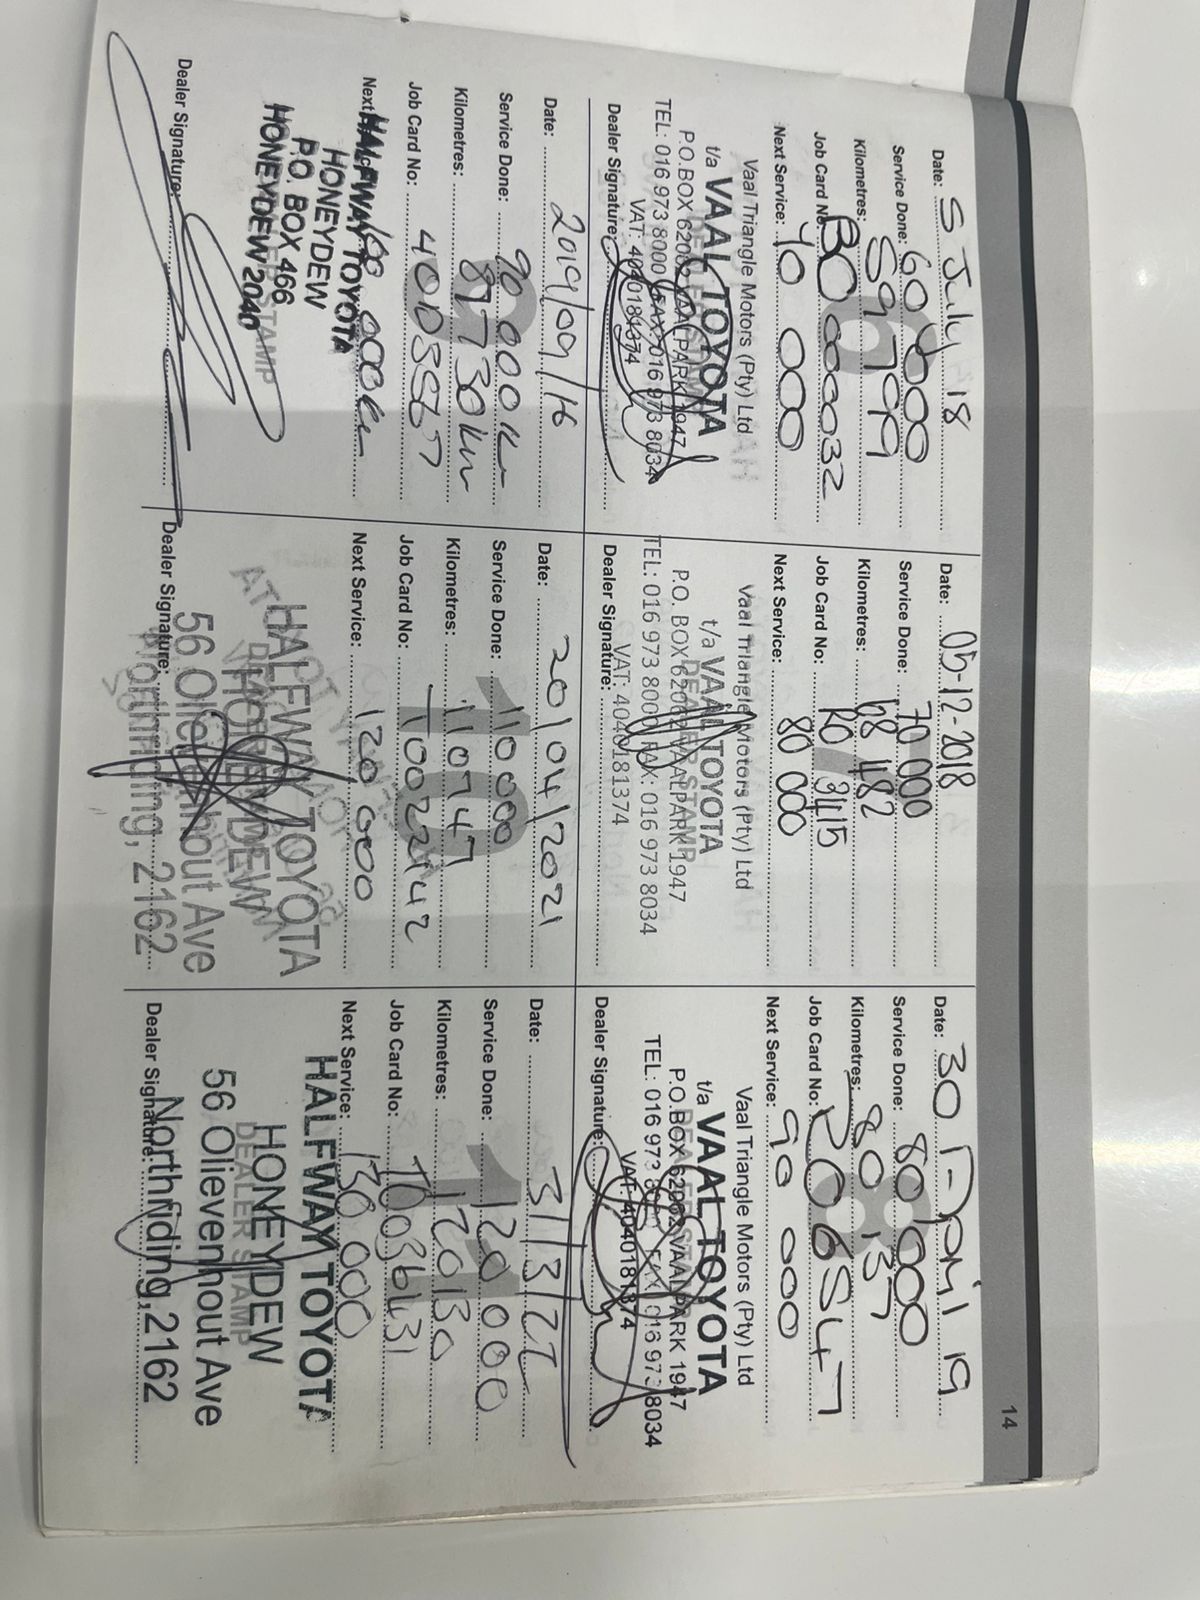 14
Date: 5 July 18
Service Done: 60 000
Kilometres: 59799
Job Card No: BO 000032
Next Service: 70 000
DEALER STAMP
Vaal Triangle Motors (Pty) Ltd
t/a VAAL TOYOTA
P.O.BOX 62082 VAALPARK 1947
TEL: 016 973 8000 FAX: 016 973 8034
VAT: 4040181374
Dealer Signature:
Date: 05-12-2018
Service Done: 70 000
Kilometres: 68 482
Job Card No: RO 3415
Next Service: 80 000
DEALER STAMP
Vaal Triangle Motors (Pty) Ltd
t/a VAAL TOYOTA
P.O. BOX 62082 VAALPARK 1947
TEL: 016 973 8000 FAX: 016 973 8034
VAT: 4040181374
Dealer Signature:
Date: 30 April 19
Service Done: 80 000
Kilometres: 80 137
Job Card No: 206547
Next Service: 90 000
8
DEALER STAMP
Vaal Triangle Motors (Pty) Ltd
t/a VAAL TOYOTA
P.O.BOX 62082 VAALPARK 1947
TEL: 016 973 8000 FAX: 016 973 8034
VAT: 4040181374
Dealer Signature:
Date: 2019/09/16
Service Done: 90 000km
Kilometres: 87730km
Job Card No:
Next
HALFWAY TOYOTA
HONEYDEW
P.O. BOX 466
HONEYDEW 2040
DEALER STAMP
Dealer Signature:
Date: 20/04/2021
Service Done: 110 000
Kilometres: 110747
Job Card No:
Next Service: 120 000
10
HALFWAY TOYOTA
HONEYDEW
56 Olievenhout Ave
Northriding, 2162
Dealer Signature:
Date: 31/3/22
Service Done: 120 000
Kilometres: 120130
Job Card No:
Next Service: 130 000
11
HALFWAY TOYOTA
HONEYDEW
DEALER STAMP
56 Olievenhout Ave
Northriding, 2162
Dealer Signature: